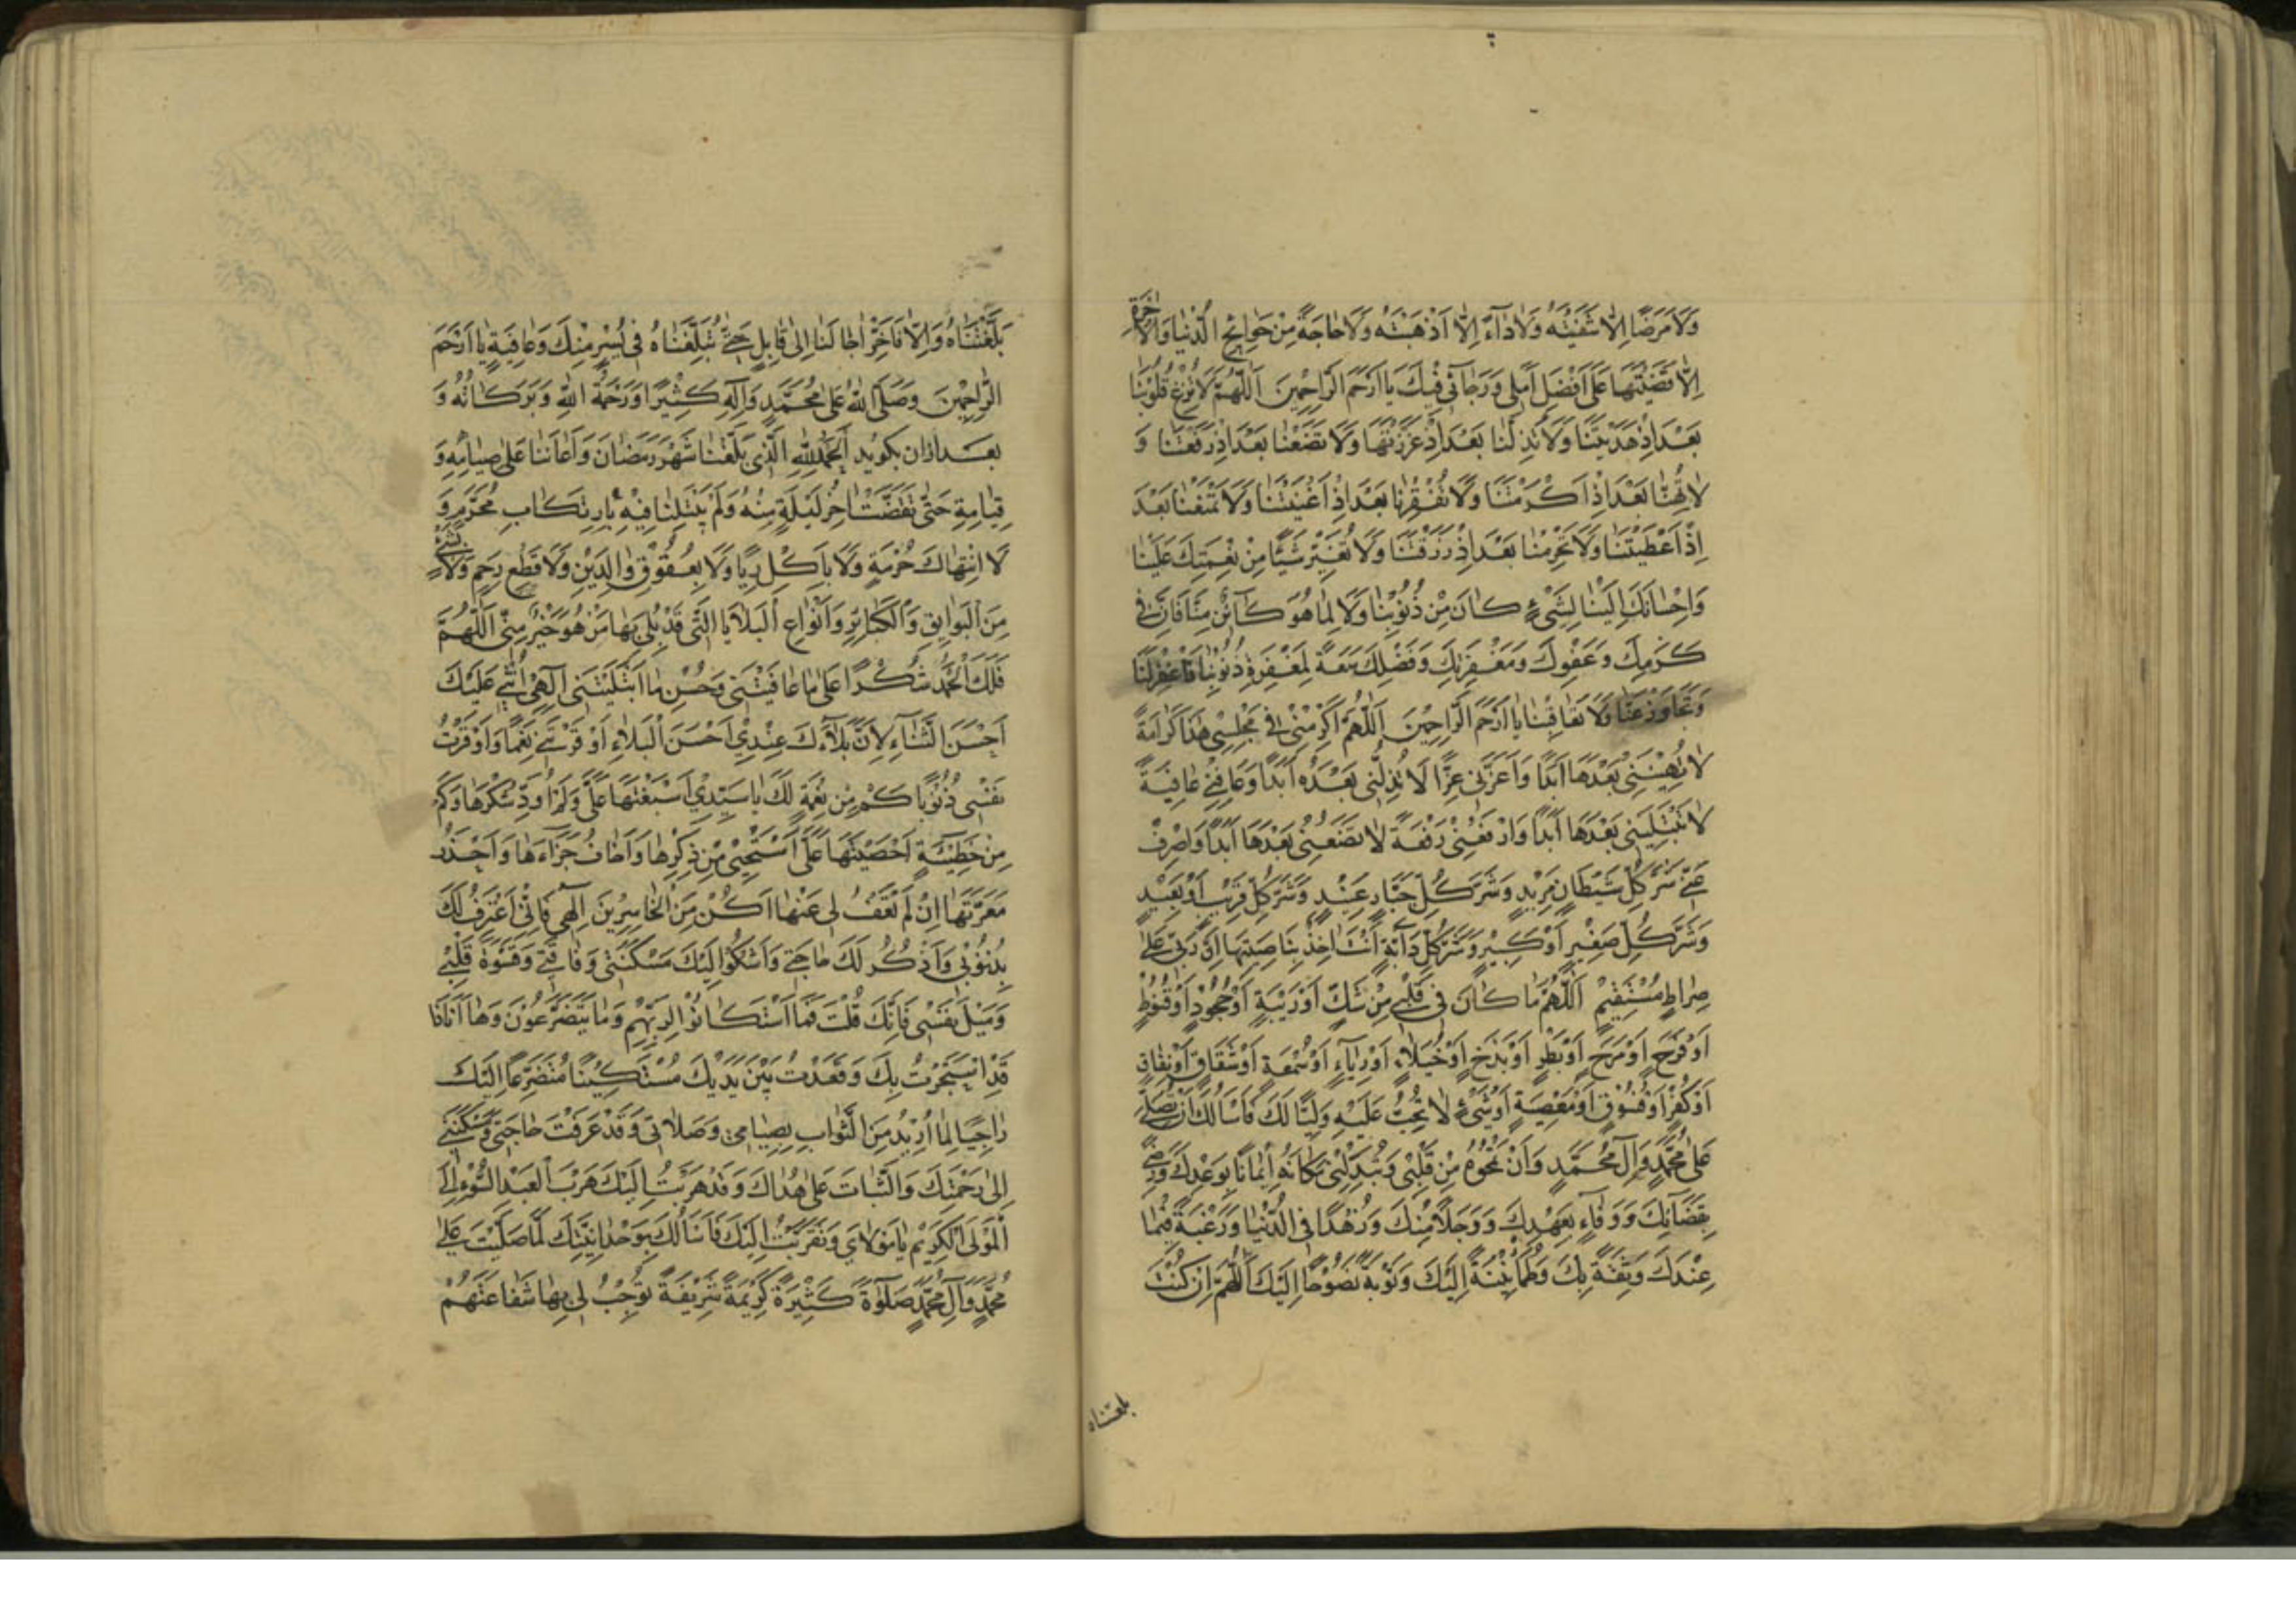 وَلَا مَرَضًا اِلَّا شَفَيْتَهُ وَلَا دَاءً اِلَّا اَذْهَبْتَهُ وَلَا حَاجَةً مِنْ حَوَائِجِ الدُّنْيَا وَالْاٰخِرَةِ
اِلَّا قَضَيْتَهَا عَلَى اَفْضَلِ اَمَلِي وَرَجَائِي فِيكَ يَا اَرْحَمَ الرَّاحِمِينَ اَللّٰهُمَّ لَا تُزِغْ قُلُوبَنَا
بَعْدَ اِذْ هَدَيْتَنَا وَلَا تُذِلَّنَا بَعْدَ اِذْ عَزَزْتَهَا وَلَا تَضَعْنَا بَعْدَ اِذْ رَفَعْتَنَا وَ
لَا تُهِنَّا بَعْدَ اِذْ اَكْرَمْتَنَا وَلَا تُفْقِرْنَا بَعْدَ اِذْ اَغْنَيْتَنَا وَلَا تَمْنَعْنَا بَعْدَ
اِذْ اَعْطَيْتَنَا وَلَا تَحْرِمْنَا بَعْدَ اِذْ رَزَقْتَنَا وَلَا تُغَيِّرْ شَيْئًا مِنْ نِعْمَتِكَ عَلَيْنَا
وَاِحْسَانِكَ اِلَيْنَا لِشَيْءٍ كَانَ مِنْ ذُنُوبِنَا وَلَا لِمَا هُوَ كَائِنٌ مِنَّا فَاِنَّ فِي
كَرَمِكَ وَعَفْوِكَ وَمَغْفِرَتِكَ وَفَضْلِكَ سَعَةً لِمَغْفِرَةِ ذُنُوبِنَا فَاغْفِرْ لَنَا
وَتَجَاوَزْ عَنَّا وَلَا تُعَاقِبْنَا يَا اَرْحَمَ الرَّاحِمِينَ اَللّٰهُمَّ اَكْرِمْنِي فِي مَجْلِسِي هٰذَا كَرَامَةً
لَا تُهِينُنِي بَعْدَهَا اَبَدًا وَاَعِزَّنِي عِزًّا لَا تُذِلُّنِي بَعْدَهُ اَبَدًا وَعَافِنِي عَافِيَةً
لَا تَبْتَلِينِي بَعْدَهَا اَبَدًا وَارْفَعْنِي رَفْعَةً لَا تَضَعُنِي بَعْدَهَا اَبَدًا وَاصْرِفْ
عَنِّي شَرَّ كُلِّ شَيْطَانٍ مَرِيدٍ وَشَرَّ كُلِّ جَبَّارٍ عَنِيدٍ وَشَرَّ كُلِّ قَرِيبٍ اَوْ بَعِيدٍ
وَشَرَّ كُلِّ صَغِيرٍ اَوْ كَبِيرٍ وَشَرَّ كُلِّ دَابَّةٍ اَنْتَ اٰخِذٌ بِنَاصِيَتِهَا اِنَّ رَبِّي عَلَى
صِرَاطٍ مُسْتَقِيمٍ اَللّٰهُمَّ مَا كَانَ فِي قَلْبِي مِنْ شَكٍّ اَوْ رَيْبَةٍ اَوْ جُحُودٍ اَوْ قُنُوطٍ
اَوْ فَرَحٍ اَوْ مَرَحٍ اَوْ بَطَرٍ اَوْ بَذَخٍ اَوْ خُيَلَاءٍ اَوْ رِيَاءٍ اَوْ سُمْعَةٍ اَوْ شِقَاقٍ اَوْ نِفَاقٍ
اَوْ كُفْرٍ اَوْ فُسُوقٍ اَوْ مَعْصِيَةٍ اَوْ شَيْءٍ لَا تُحِبُّ عَلَيْهِ وَلِيًّا لَكَ فَاَسْاَلُكَ اَنْ تُصَلِّيَ
عَلَى مُحَمَّدٍ وَآلِ مُحَمَّدٍ وَاَنْ تَمْحُوَهُ مِنْ قَلْبِي وَتُبَدِّلَنِي مَكَانَهُ اِيمَانًا بِوَعْدِكَ وَرِضًى
بِقَضَائِكَ وَوَفَاءٍ بِعَهْدِكَ وَوَجَلًا مِنْكَ وَزُهْدًا فِي الدُّنْيَا وَرَغْبَةً فِيمَا
عِنْدَكَ وَثِقَةً بِكَ وَطُمَأْنِينَةً اِلَيْكَ وَتَوْبَةً نَصُوحًا اِلَيْكَ اَللّٰهُمَّ اِنْ كُنْتَ
بلغتناه
بَلَّغْتَنَاهُ وَاِلَّا فَاَخِّرْ اٰجَالَنَا اِلَى قَابِلٍ حَتَّى تُبَلِّغَنَاهُ فِي يُسْرٍ مِنْكَ وَعَافِيَةٍ يَا اَرْحَمَ
الرَّاحِمِينَ وَصَلَّى اللّٰهُ عَلَى مُحَمَّدٍ وَآلِهِ كَثِيرًا وَرَحْمَةُ اللّٰهِ وَبَرَكَاتُهُ وَ
بعد ازان بكويد اَلْحَمْدُ لِلّٰهِ الَّذِي بَلَّغَنَا شَهْرَ رَمَضَانَ وَاَعَانَنَا عَلَى صِيَامِهِ وَ
قِيَامِهِ حَتَّى تَقَضَّتْ اٰخِرُ لَيْلَةٍ مِنْهُ وَلَمْ يَبْتَلِنَا فِيهِ بِارْتِكَابِ مُحَرَّمٍ وَ
لَا انْتِهَاكِ حُرْمَةٍ وَلَا بِاَكْلِ رِبًا وَلَا بِعُقُوقِ وَالِدَيْنِ وَلَا قَطْعِ رَحِمٍ وَلَا بِشَيْءٍ
مِنَ الْبَوَائِقِ وَالْكَبَائِرِ وَاَنْوَاعِ الْبَلَايَا الَّتِي قَدْ بُلِيَ بِهَا مَنْ هُوَ خَيْرٌ مِنِّي اَللّٰهُمَّ
فَلَكَ الْحَمْدُ شُكْرًا عَلَى مَا عَافَيْتَنِي وَحُسْنِ مَا ابْتَلَيْتَنِي اِلٰهِي اُثْنِي عَلَيْكَ
اَحْسَنَ الثَّنَاءِ لِاَنَّ بَلَاءَكَ عِنْدِي اَحْسَنَ الْبَلَاءِ اَوْقَرْتَنِي نِعَمًا وَاَوْقَرْتُ
نَفْسِي ذُنُوبًا كَمْ مِنْ نِعْمَةٍ لَكَ يَا سَيِّدِي اَسْبَغْتَهَا عَلَيَّ وَلَمْ اُؤَدِّ شُكْرَهَا وَكَمْ
مِنْ خَطِيئَةٍ اَحْصَيْتَهَا عَلَيَّ اَسْتَحْيِي مِنْ ذِكْرِهَا وَاَخَافُ جَزَاءَهَا وَاَحْذَرُ
مَعَرَّتَهَا اِنْ لَمْ تَعْفُ لِي عَنْهَا اَكُنْ مِنَ الْخَاسِرِينَ اِلٰهِي فَاِنِّي اَعْتَرِفُ لَكَ
بِذُنُوبِي وَاَذْكُرُ لَكَ حَاجَتِي وَاَشْكُو اِلَيْكَ مَسْكَنَتِي وَفَاقَتِي وَقَسْوَةَ قَلْبِي
وَمَيْلَ نَفْسِي فَاِنَّكَ قُلْتَ فَمَا اسْتَكَانُوا لِرَبِّهِمْ وَمَا يَتَضَرَّعُونَ وَهَا اَنَا ذَا
قَدِ اسْتَجَرْتُ بِكَ وَقَعَدْتُ بَيْنَ يَدَيْكَ مُسْتَكِينًا مُتَضَرِّعًا اِلَيْكَ
رَاجِيًا لِمَا اُرِيدُ مِنَ الثَّوَابِ بِصِيَامِي وَصَلَاتِي وَقَدْ عَرَفْتَ حَاجَتِي وَمَسْكَنَتِي
اِلَى رَحْمَتِكَ وَالثَّبَاتَ عَلَى هُدَاكَ وَقَدْ هَرَبْتُ اِلَيْكَ هَرَبَ الْعَبْدِ السُّوءِ اِلَى
الْمَوْلَى الْكَرِيمِ يَا مَوْلَايَ وَتَقَرَّبْتُ اِلَيْكَ فَاَسْاَلُكَ بِوَحْدَانِيَّتِكَ لَمَّا صَلَّيْتَ عَلَى
مُحَمَّدٍ وَآلِ مُحَمَّدٍ صَلٰوةً كَثِيرَةً كَرِيمَةً شَرِيفَةً تُوجِبُ لِي بِهَا شَفَاعَتَهُمْ